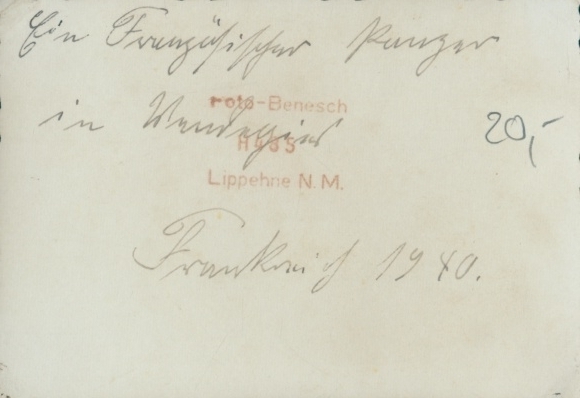 Ein Französischer Panzer
in Wendegies
20,-
Foto-Benesch
H455
Lippehne N.M.
Frankreich 1940.